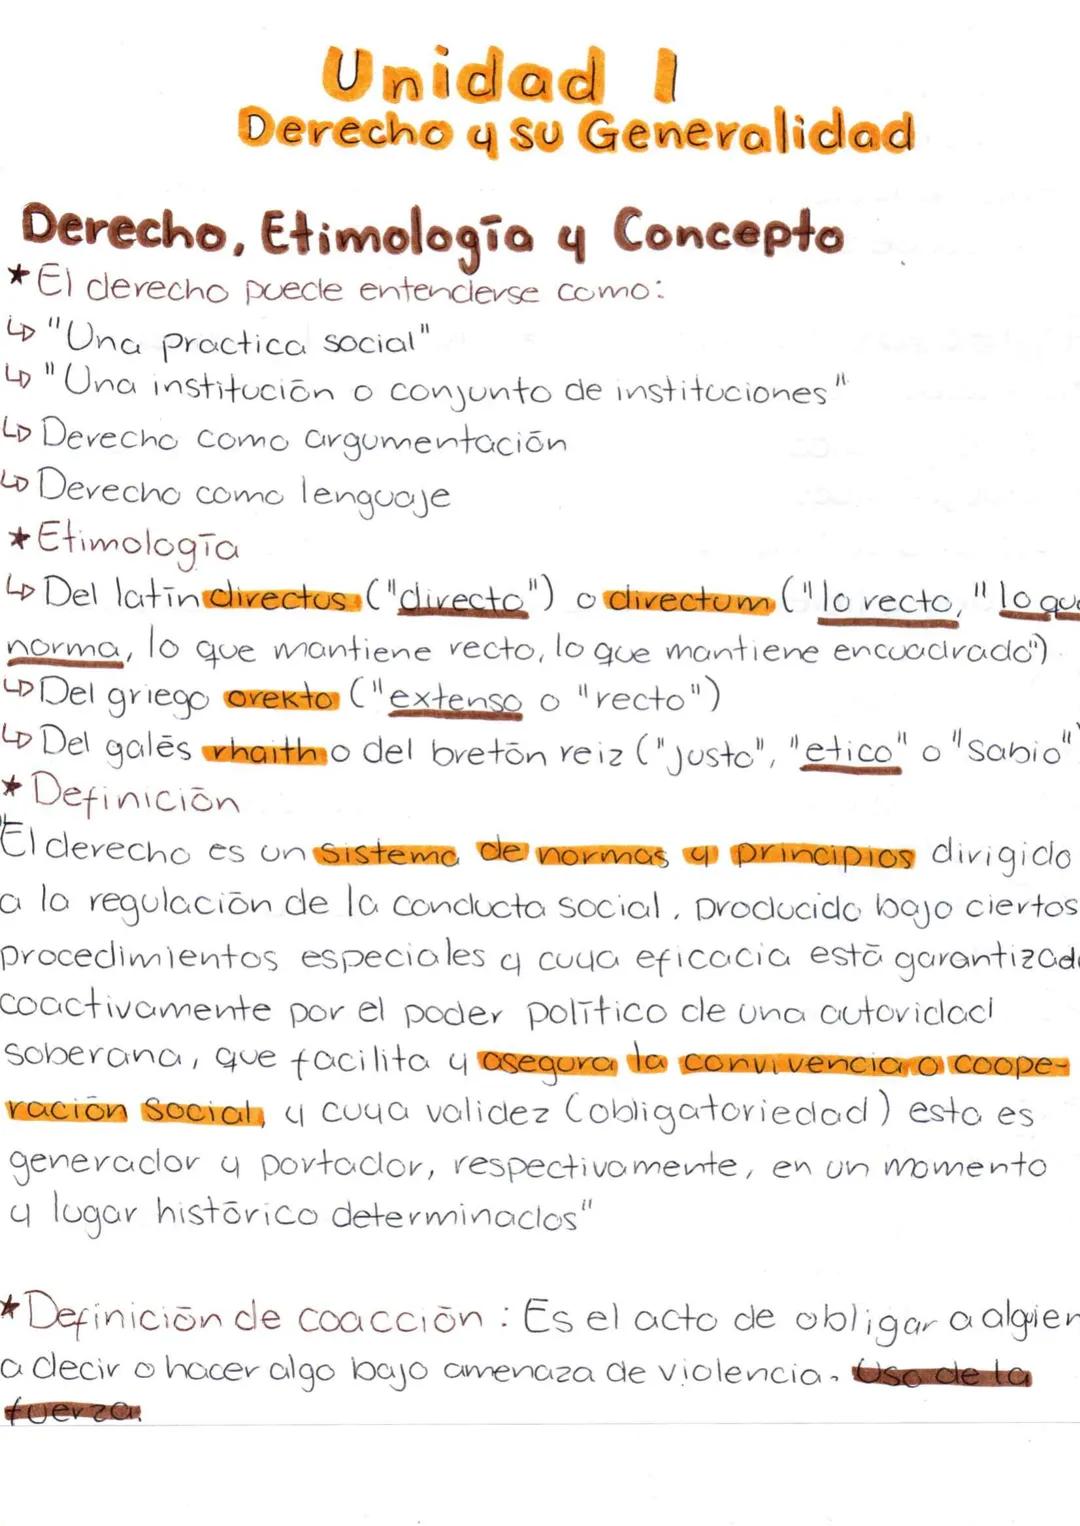 Unidad 1
Derecho y su Generalidad
Derecho, Etimología y Concepto
*El derecho puede entenderse como:
↳ "Una practica social"
↳ "Una institución o conjunto de instituciones"
↳ Derecho como argumentación
↳ Derecho como lenguaje
*Etimología
↳ Del latín directus ("directo") o directum ("lo recto, "lo que
norma, lo que mantiene recto, lo que mantiene encuadrado")
↳ Del griego orekto ("extenso o "recto")
↳ Del galés rhaith o del bretón reiz ("justo", "etico" o "sabio")
* Definición
"El derecho es un sistema de normas y principios dirigido
a la regulación de la conducta social, producido bajo ciertos
procedimientos especiales y cuya eficacia está garantizada
coactivamente por el poder político de una autoridad
soberana, que facilita y asegura la convivencia o coope-
ración social, y cuya validez (obligatoriedad) esta es
generador y portador, respectivamente, en un momento
y lugar histórico determinados"
*Definición de coacción: Es el acto de obligar a alguien
a decir o hacer algo bajo amenaza de violencia. Uso de la
fuerza.